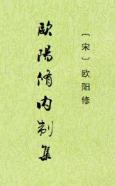 〔宋〕欧阳修
歐陽脩内制集